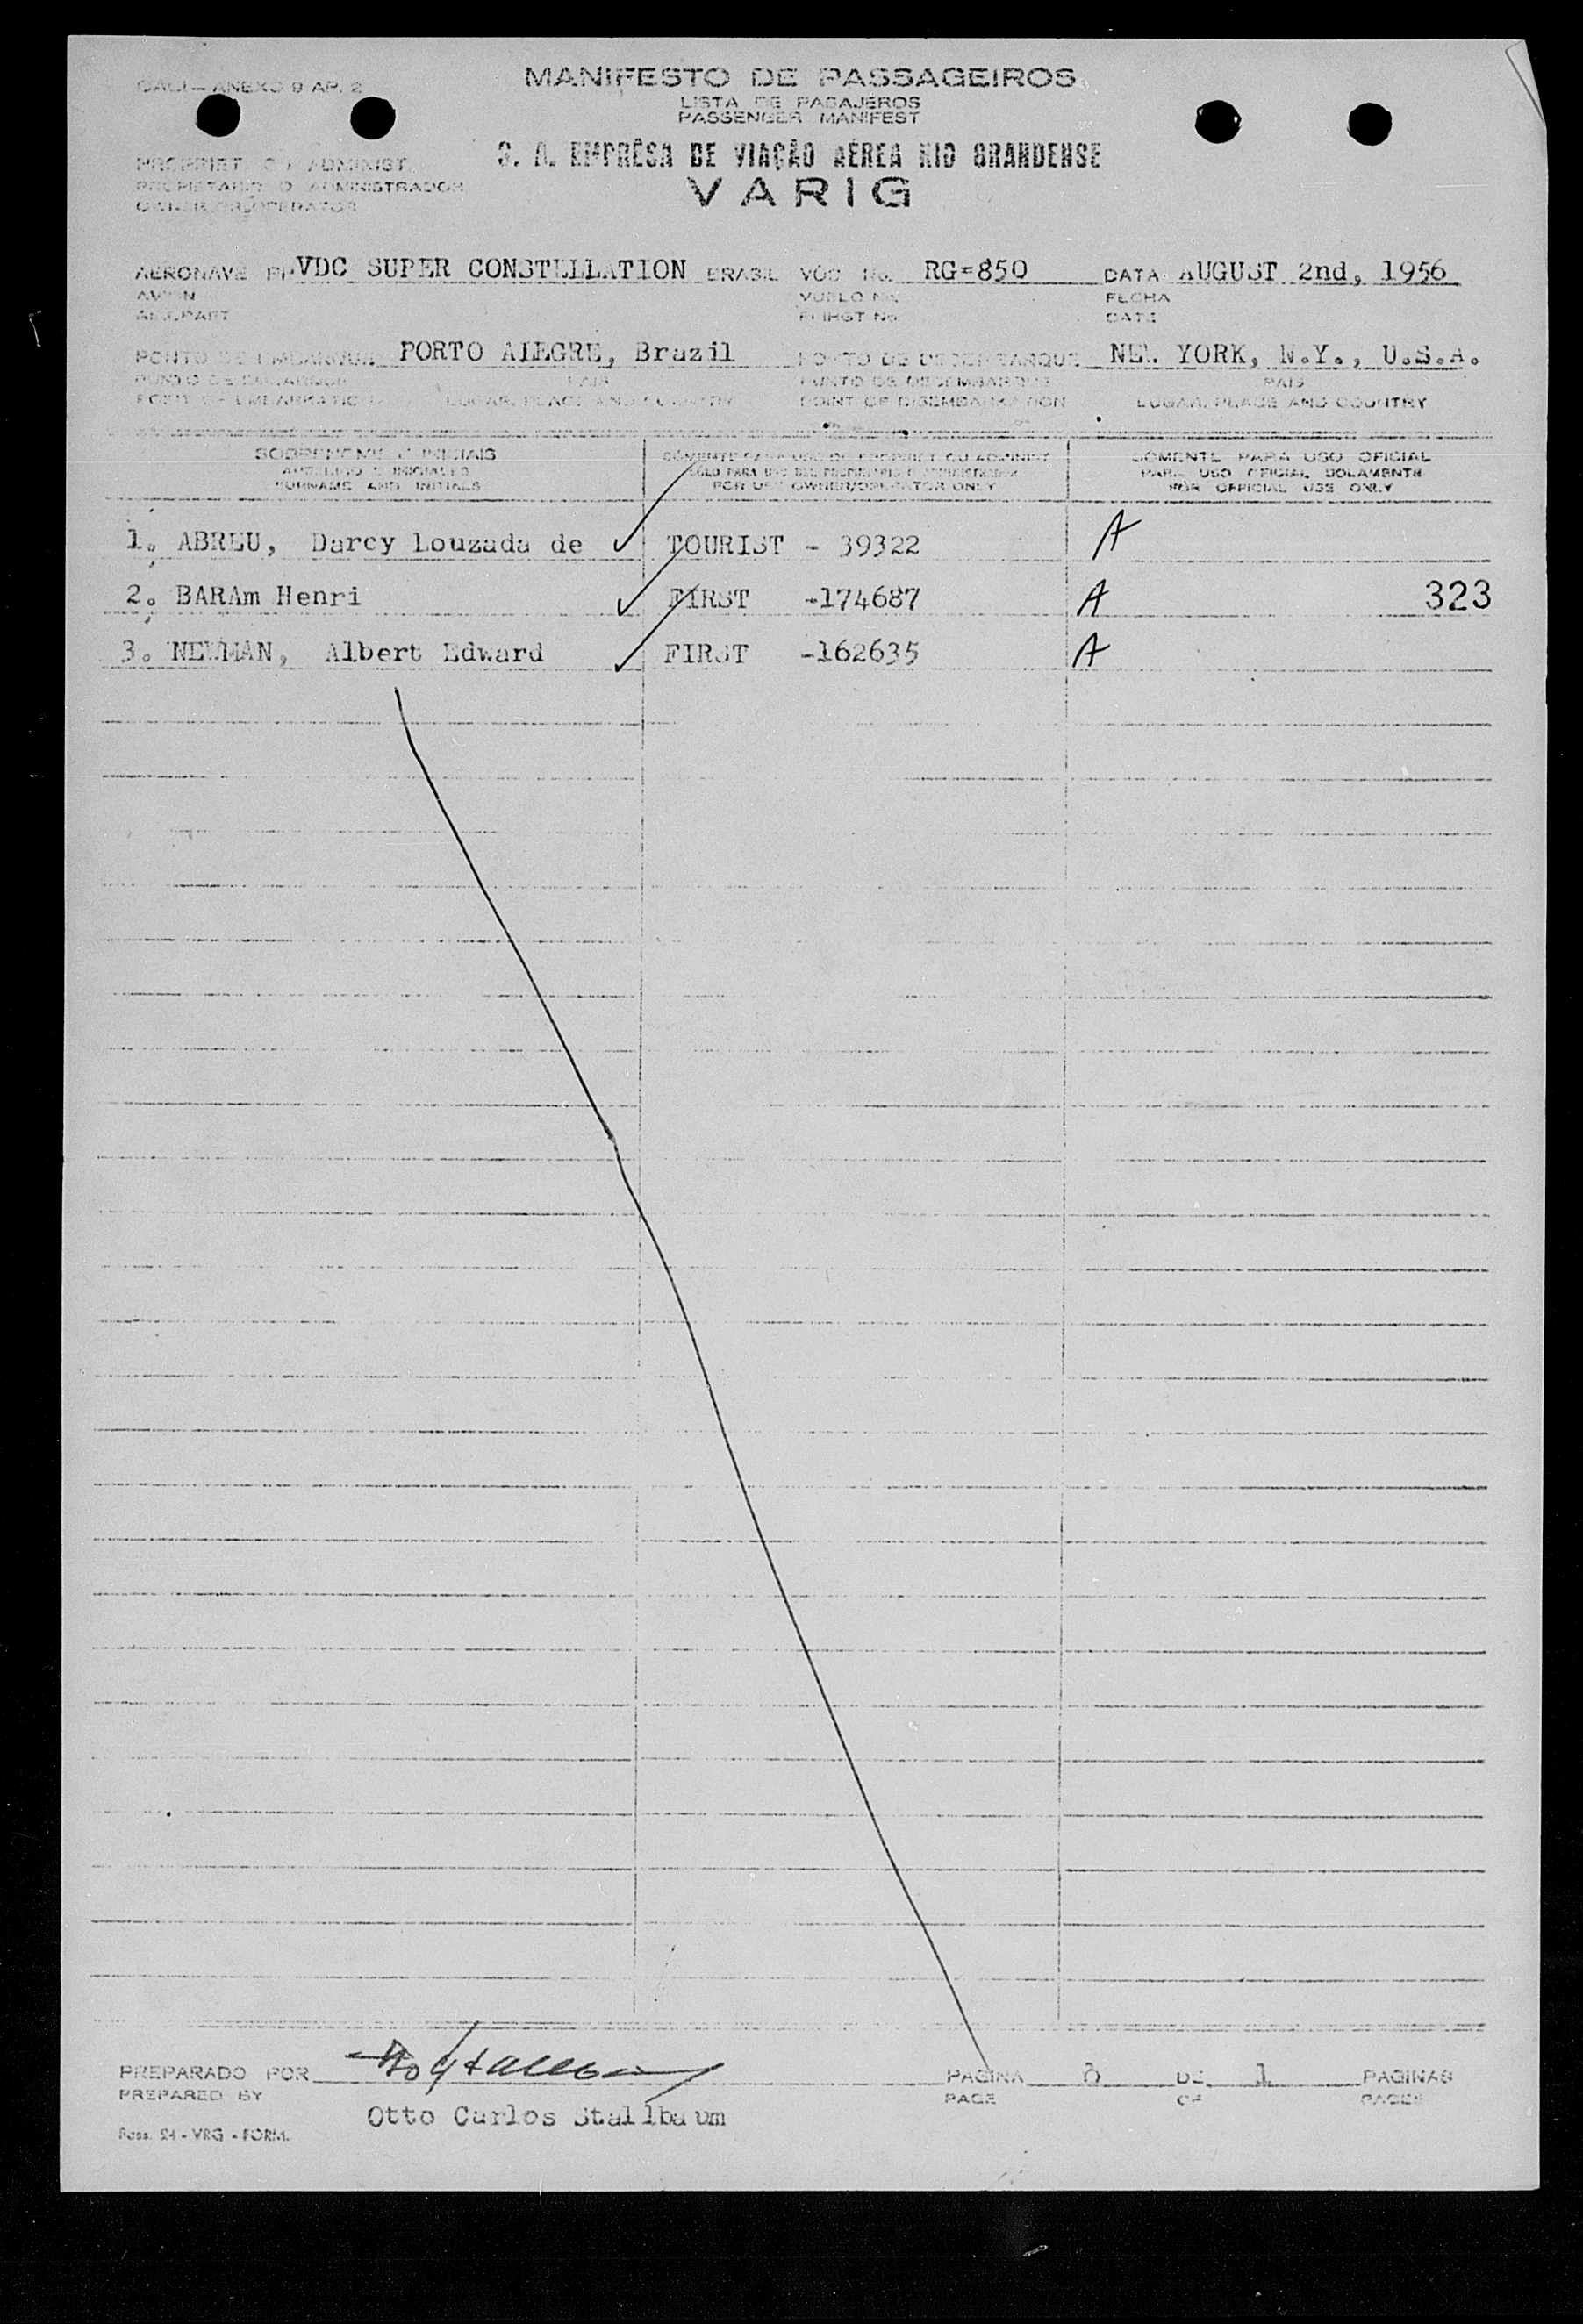 OACI — ANEXO 9 AP. 2
MANIFESTO DE PASSAGEIROS
LISTA DE PASAJEROS
PASSENGER MANIFEST
S. A. EMPRÊSA DE VIAÇÃO AÉREA RIO GRANDENSE
VARIG
PROPRIET. OU ADMINIST.
PROPIETARIO O ADMINISTRADOR
OWNER OR OPERATOR
AERONAVE PP-VDC SUPER CONSTELLATION BRASIL VÔO No. RG=850 DATA AUGUST 2nd, 1956
AVION VUELO No. FECHA
AIRCRAFT FLIHGT No. DATE
PONTO DE EMBARQUE PORTO ALEGRE, Brazil PONTO DE DESEMBARQUE NEW YORK, N.Y., U.S.A.
PUNTO DE EMBARQUE PAIS PUNTO DE DESEMBARQUE PAIS
POINT OF EMBARKATION LUGAR, PLACE AND COUNTRY POINT OF DISEMBARKATION LUGAR, PLACE AND COUNTRY
SOBRENOME E INICIAIS SOMENTE PARA USO DO PROPRIET. OU ADMINIST. SOMENTE PARA USO OFICIAL
APELLIDO E INICIALES SOLO PARA USO DEL PROPIETARIO O ADMINISTRADOR PARA USO OFICIAL SOLAMENTE
SURNAME AND INITIALS FOR USE OWNER/OPERATOR ONLY FOR OFFICIAL USE ONLY
1. ABREU, Darcy Louzada de TOURIST - 39322 A
2. BARAm Henri FIRST -174687 A 323
3. NEWMAN, Albert Edward FIRST -162635 A
PREPARADO POR PAGINA DE 1 PAGINAS
PREPARED BY PAGE OF PAGES
Otto Carlos Stallbaum
Pass. 24 - VRG - FORM.